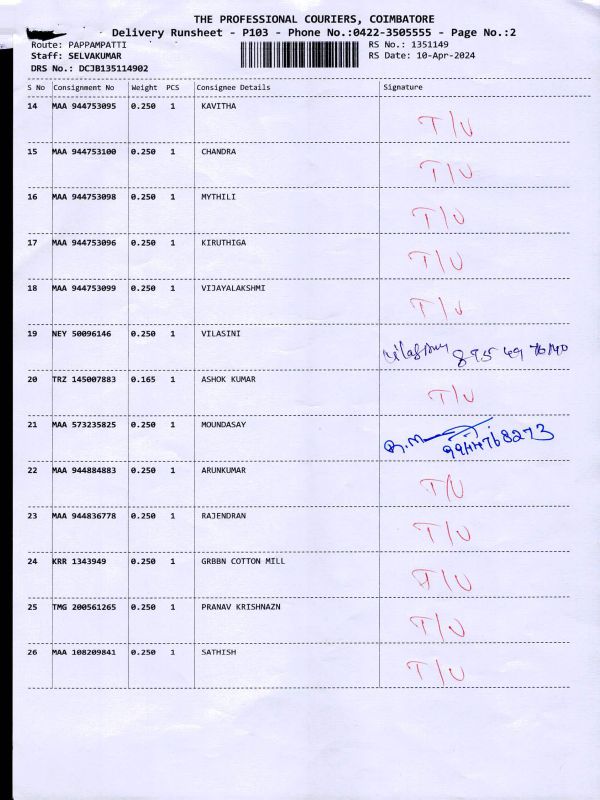 THE PROFESSIONAL COURIERS, COIMBATORE
Delivery Runsheet - P103 - Phone No.:0422-3505555 - Page No.:2
Route: PAPPAMPATTI RS No.: 1351149
Staff: SELVAKUMAR RS Date: 10-Apr-2024
DRS No.: DCJB135114902
S No Consignment No Weight PCS Consignee Details Signature
14 MAA 944753095 0.250 1 KAVITHA T/U
15 MAA 944753100 0.250 1 CHANDRA T/U
16 MAA 944753098 0.250 1 MYTHILI T/U
17 MAA 944753096 0.250 1 KIRUTHIGA T/U
18 MAA 944753099 0.250 1 VIJAYALAKSHMI T/U
19 NEY 50096146 0.250 1 VILASINI
20 TRZ 145007883 0.165 1 ASHOK KUMAR T/U
21 MAA 573235825 0.250 1 MOUNDASAY
22 MAA 944884883 0.250 1 ARUNKUMAR T/U
23 MAA 944836778 0.250 1 RAJENDRAN T/U
24 KRR 1343949 0.250 1 GRBBN COTTON MILL T/U
25 TMG 200561265 0.250 1 PRANAV KRISHNAZN T/U
26 MAA 108209841 0.250 1 SATHISH T/U